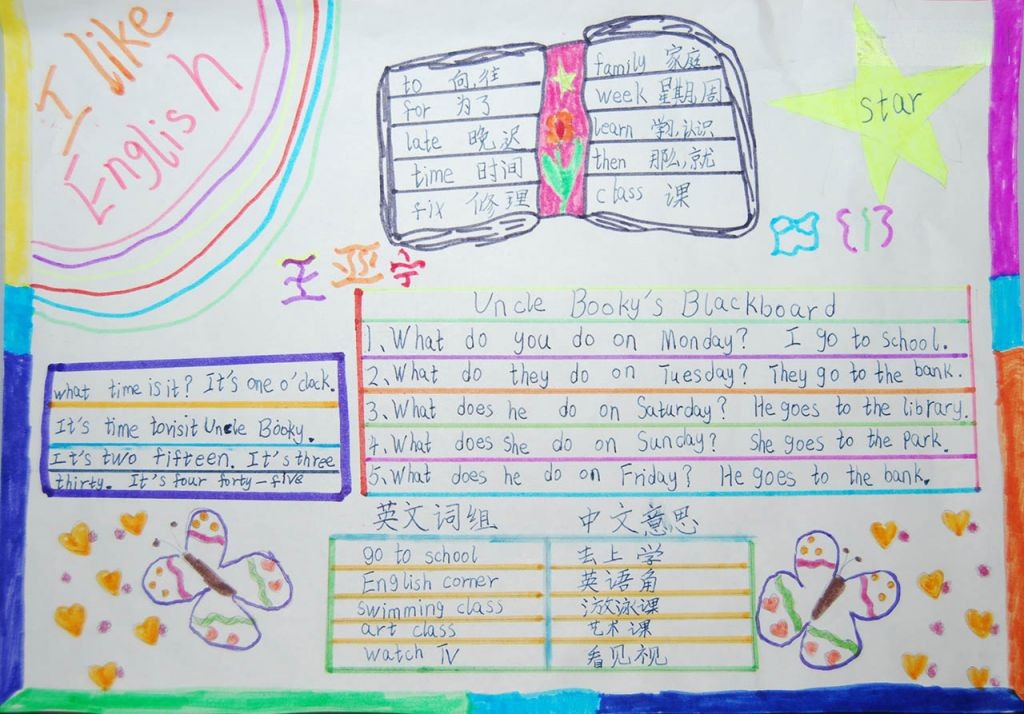 I like
English
to 向,往
for 为了
late 晚,迟
time 时间
fix 修理
family 家庭
week 星期,周
learn 学习,认识
then 那么,就
class 课
star
四(1)
王亚宁
Uncle Booky's Blackboard
1、What do you do on Monday? I go to school.
2、What do they do on Tuesday? They go to the bank.
3、What does he do on Saturday? He goes to the library.
4、What does she do on Sunday? She goes to the park.
5、What does he do on Friday? He goes to the bank.
what time is it? It's one o'clock.
It's time to visit Uncle Booky.
It's two fifteen. It's three
thirty. It's four forty-five
英文词组 中文意思
go to school 去上学
English corner 英语角
swimming class 游泳课
art class 艺术课
watch TV 看见视